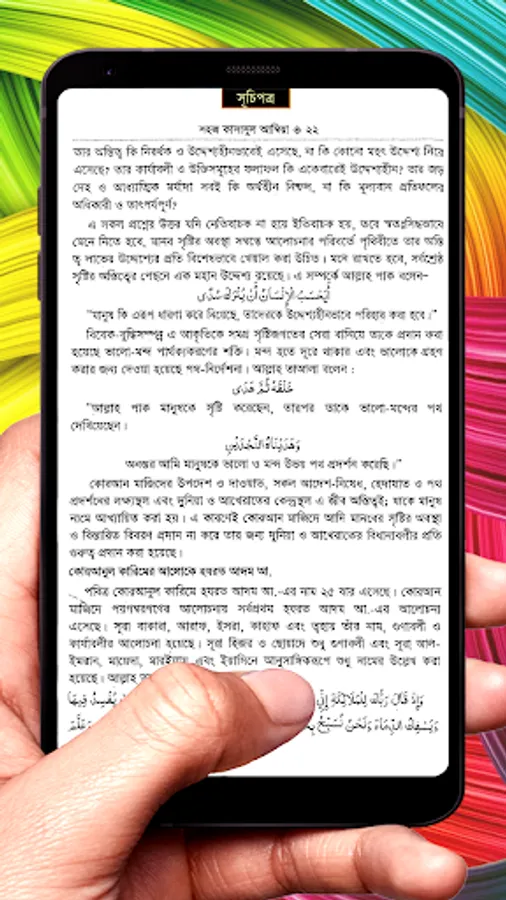 সূচিপত্র
সহজ কাসাসুল আম্বিয়া ৬ ২২
তার অস্তিত্ব কি নিরর্থক ও উদ্দেশ্যহীনভাবেই এসেছে, না কি কোনো মহৎ উদ্দেশ্য নিয়ে
এসেছে? তার কার্যাবলী ও উক্তিসমূহের ফলাফল কি একেবারেই উদ্দেশ্যহীন? তার জড়
দেহ ও আধ্যাত্মিক মর্যাদা সবই কি অর্থহীন নিষ্ফল, না কি মূল্যবান প্রতিফলের
অধিকারী ও তাৎপর্যপূর্ণ?
এ সকল প্রশ্নের উত্তর যদি নেতিবাচক না হয়ে ইতিবাচক হয়, তবে স্বতঃসিদ্ধভাবে
মেনে নিতে হবে, মানব সৃষ্টির অবস্থা সম্বন্ধে আলোচনার পরিবর্তে পৃথিবীতে তার অস্তি
ত্ব লাভের উদ্দেশ্যের প্রতি বিশেষভাবে খেয়াল করা উচিত। মনে রাখতে হবে, সর্বশ্রেষ্ঠ
সৃষ্টির অস্তিত্বের পেছনে এক মহান উদ্দেশ্য রয়েছে। এ সম্পর্কে আল্লাহ পাক বলেন-
أَيَحْسَبُ الْإِنْسَانُ أَنْ يُتْرَكَ سُدًى
"মানুষ কি এরূপ ধারণা করে নিয়েছে, তাদেরকে উদ্দেশ্যহীনভাবে পরিহার করা হবে।"
বিবেক-বুদ্ধিসম্পন্ন এ আকৃতিকে সমগ্র সৃষ্টিজগতের সেরা বানিয়ে তাকে প্রদান করা
হয়েছে ভালো-মন্দ পার্থক্যকরণের শক্তি। মন্দ হতে দূরে থাকার এবং ভালোকে গ্রহণ
করার জন্য দেওয়া হয়েছে পথ-নির্দেশনা। আল্লাহ তাআলা বলেন :
خَلَقَهُ ثُمَّ هَدَى
"আল্লাহ পাক মানুষকে সৃষ্টি করেছেন, তারপর তাকে ভালো-মন্দের পথ
দেখিয়েছেন।
وَهَدَيْنَاهُ النَّجْدَيْنِ
অনন্তর আমি মানুষকে ভালো ও মন্দ উভয় পথ প্রদর্শন করেছি।"
কোরআন মাজিদের উপদেশ ও দাওয়াত, সকল আদেশ-নিষেধ, হেদায়াত ও পথ
প্রদর্শনের লক্ষ্যস্থল এবং দুনিয়া ও আখেরাতের কেন্দ্রস্থল এ জীব অস্তিত্বই; যাকে মানুষ
নামে আখ্যায়িত করা হয়। এ কারণেই কোরআন মাজিদে আদি মানবের সৃষ্টির অবস্থা
ও বিস্তারিত বিবরণ প্রদান না করে তার জন্য দুনিয়া ও আখেরাতের বিধানাবলীর প্রতি
গুরুত্ব প্রদান করা হয়েছে।
কোরআনুল কারিমের আলোকে হযরত আদম আ.
পবিত্র কোরআনুল কারিমে হযরত আদম আ.-এর নাম ২৫ বার এসেছে। কোরআন
মাজিদে পয়গম্বরগণের আলোচনায় সর্বপ্রথম হযরত আদম আ.-এর আলোচনা
এসেছে। সূরা বাকারা, আরাফ, ইসরা, কাহাফ এবং ত্বহায় তাঁর নাম, গুণাবলী ও
কার্যাবলীর আলোচনা হয়েছে। সূরা হিজর ও ছোয়াদে শুধু গুণাবলী এবং সূরা আল-
ইমরান, মায়েদা, মারইয়াম এবং ইয়াসিনে আনুসাঙ্গিকরূপে শুধু নামের উল্লেখ করা
হয়েছে। আল্লাহ
وَإِذْ قَالَ رَبُّكَ لِلْمَلَائِكَةِ إِنِّي يُفْسِدُ فِيهَا
وَيَسْفِكُ الدِّمَاءَ وَنَحْنُ نُسَبِّحُ